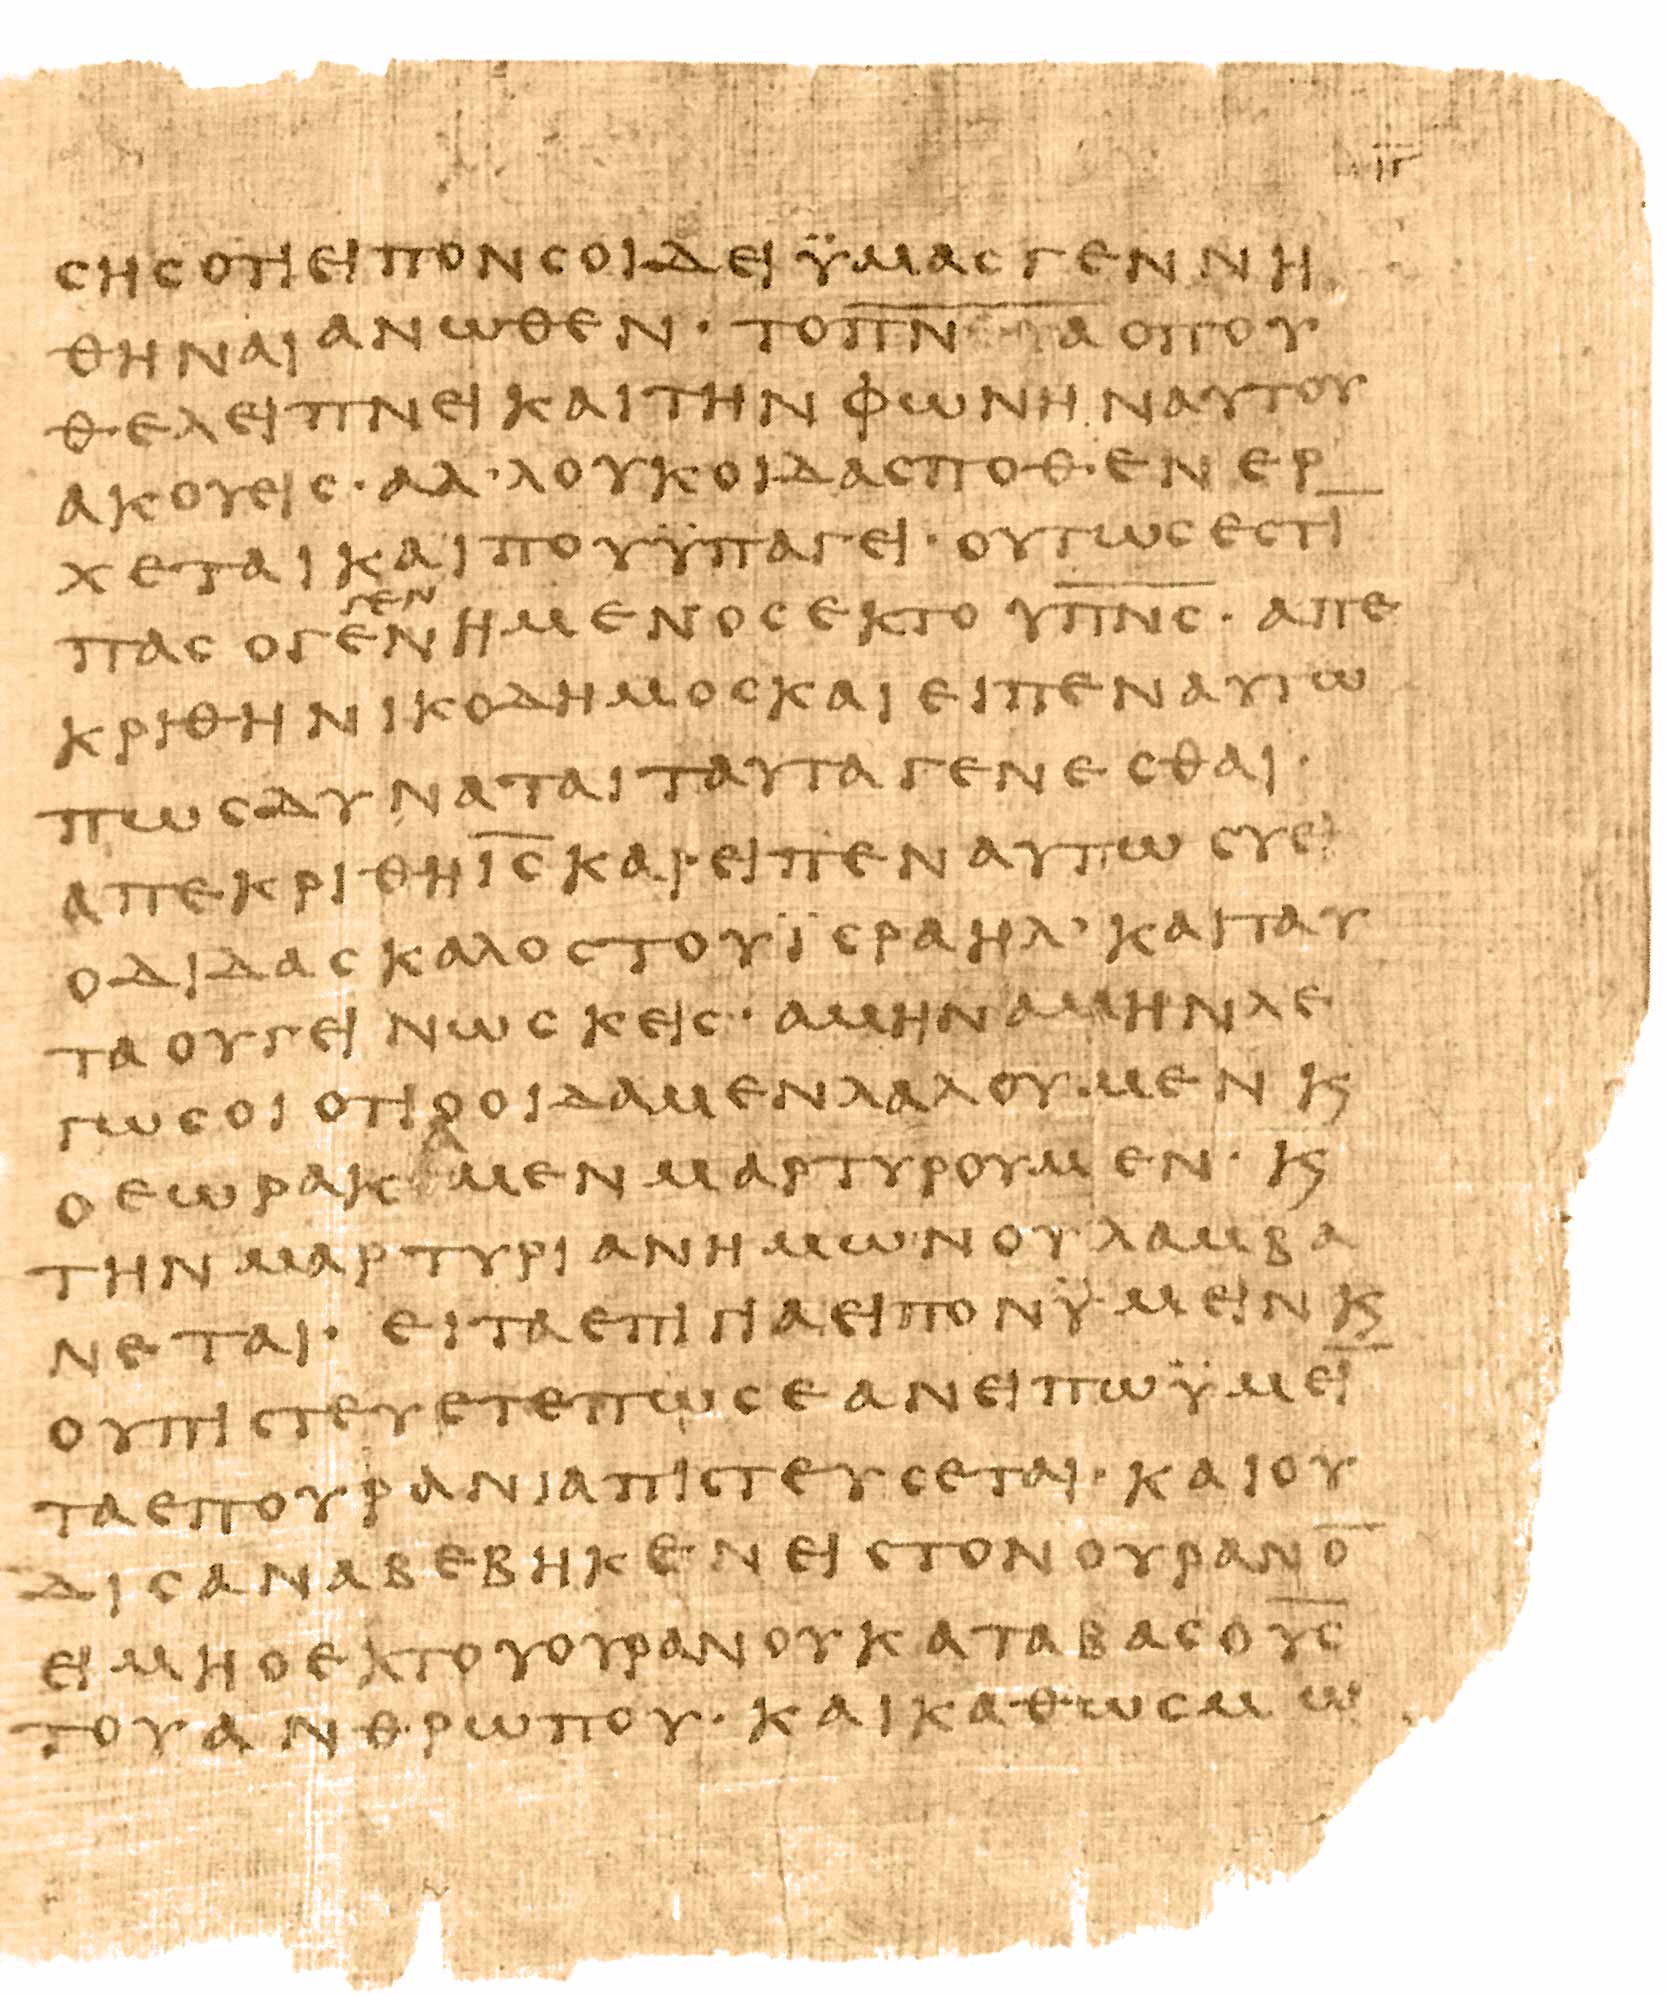 ιγ
ϲηϲοτιειπονϲοιδειϋμαϲγεννη
θηναιανωθεν· τοπ̅ν̅α̅οπου
θελειπνεικαιτηνφωνηναυτου
ακουειϲ· αλ’λουκοιδαϲποθενερ
χεταικαιπουϋπαγει· ουτωϲεϲτι̅
γεν
παϲογενημενοϲεκτουπ̅ν̅ϲ̅· απε
κριθηνικοδημοϲκαιειπεναυτω
πωϲδυναταιταυταγενεϲθαι·
απεκριθηι̅ϲ̅καιειπεναυτωϲυει
οδιδαϲκαλοϲτουϊϲραηλ’καιταυ
ταουγεινωϲκειϲ· αμηναμηνλε
γωϲοιοτιοοιδαμενλαλουμενκϛ
α
οεωρακμενμαρτυρουμεν· κϛ
τηνμαρτυριανημωνουλαμβα
νεται· ειταεπιγιαειπονϋμεινκϛ
ουπιϲτευετεπωϲεανειπωϋμει̅
ταεπουρανιαπιϲτευϲεται· καιου
διϲαναβεβηκενειϲτονουρανο̅
ειμηοεκτουουρανουκαταβαϲου̅ϲ̅
τουανθρωπου· καικαθωϲμω